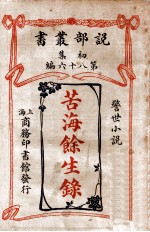 說部叢書
初集
第八十六編
警世小說
苦海餘生錄
上海
商務印書館發行